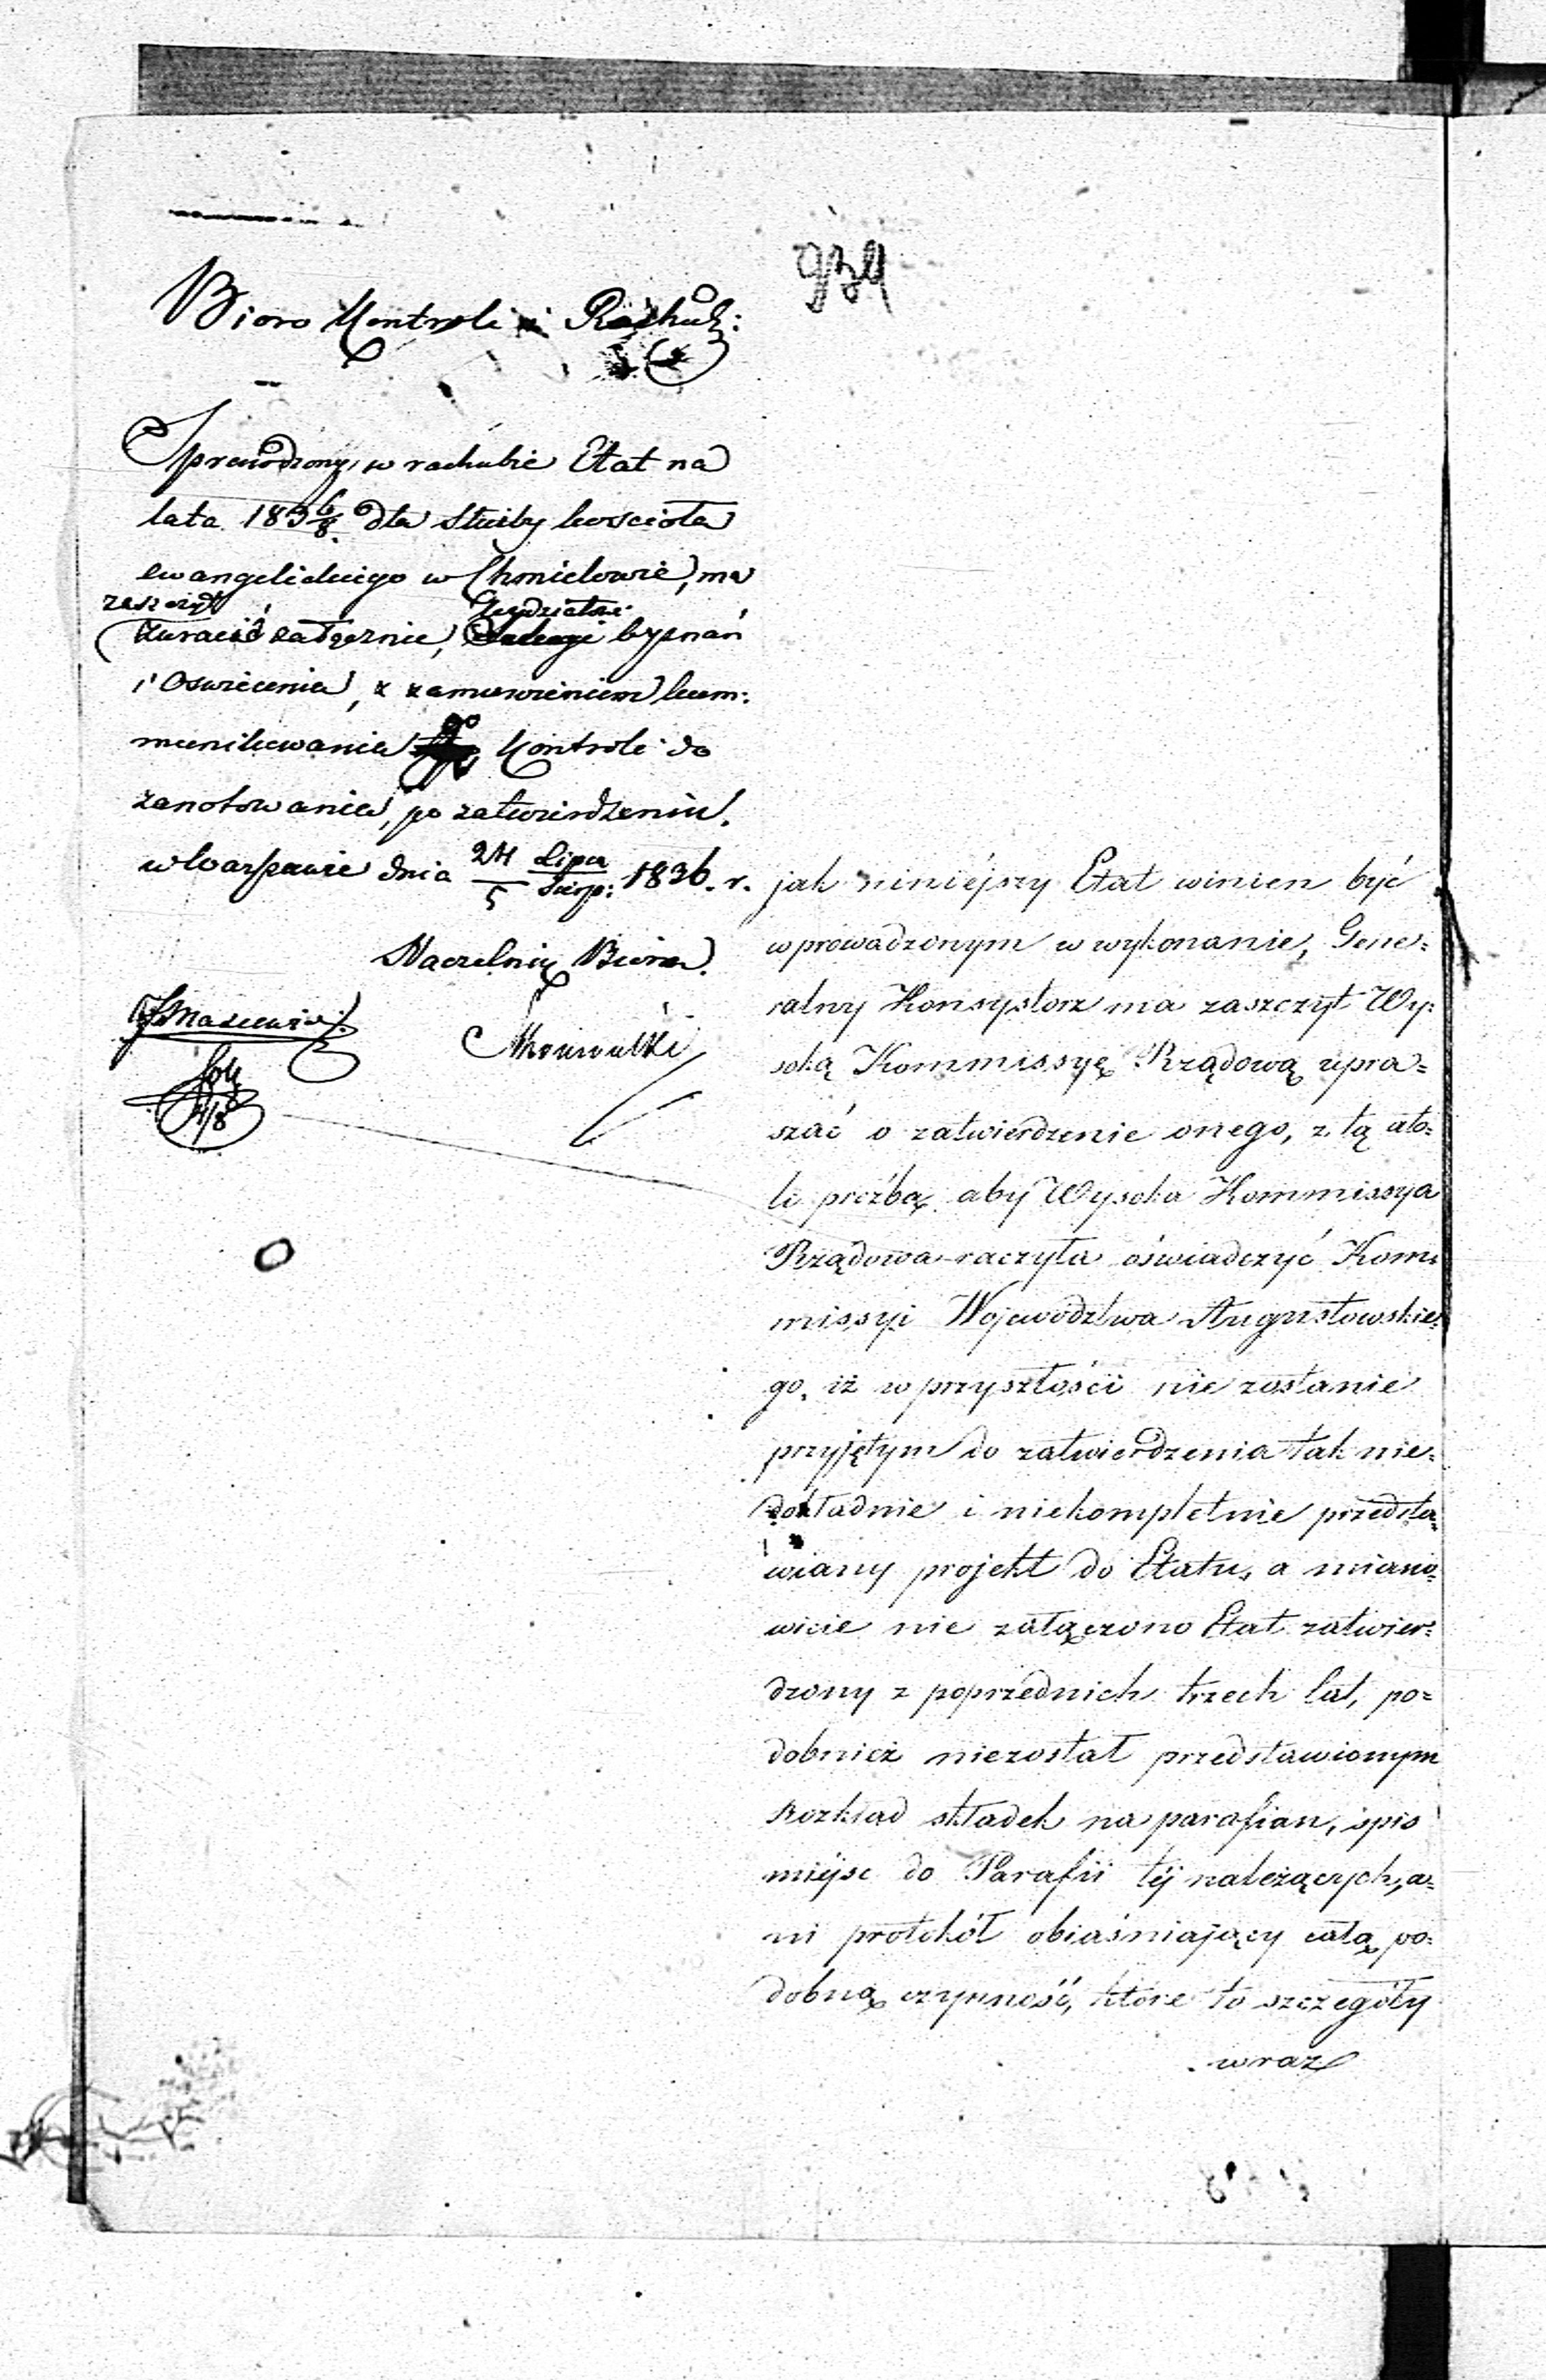 939
Bioro Kontroli i Rachub:
Sprawdzony w rachubie Etat na
lata 1836/8. dla Służby kościoła
ewangelickiego w Chmielowie, ma
zaszczyt
zwrócić załącznie, Wydziałowi Wyznań
i Oswiecenia, z zamówieniem kom:
munikowania go Kontroli do
zanotowania, po zatwierdzeniu.
w Warszawie dnia 24 Lipca / 5 Sierp: 1836. r.
Naczelnik Biura.
jak niniéjszy Etat winien być
wprowadzonym w wykonanie, Gene=
ralny Konsystorz ma zaszczyt Wy=
soką Kommissyę Rządową upra=
szać o zatwierdzenie onego, z tą ato=
li proźbą aby Wysoka Kommissya
Rządowa raczyła oświadczyć Kom=
missyi Województwa Augustowskie=
go, iż w przyszłości nie zostanie
przyjętym do zatwierdzenia tak nie=
dokładnie i niekompletnie przedsta=
wiany projekt do Etatu, a miano=
wicie nie załączono Etat zatwier=
dzony z poprzednich trzech lat, po=
dobnież niezostał przedstawionym
Rozkład składek na parafian, spis
miéjsc do Parafii téj należących, a=
ni protokół obiaśniający całą po=
dobną czynność, które to szczegóły
wraz